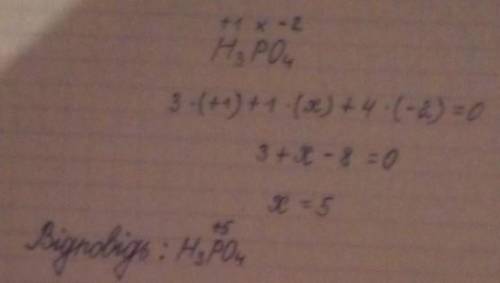 +1 x -2
H₃PO₄
3·(+1)+1·(x)+4·(-2)=0
3+x-8=0
x=5
+5
Відповідь: H₃PO₄